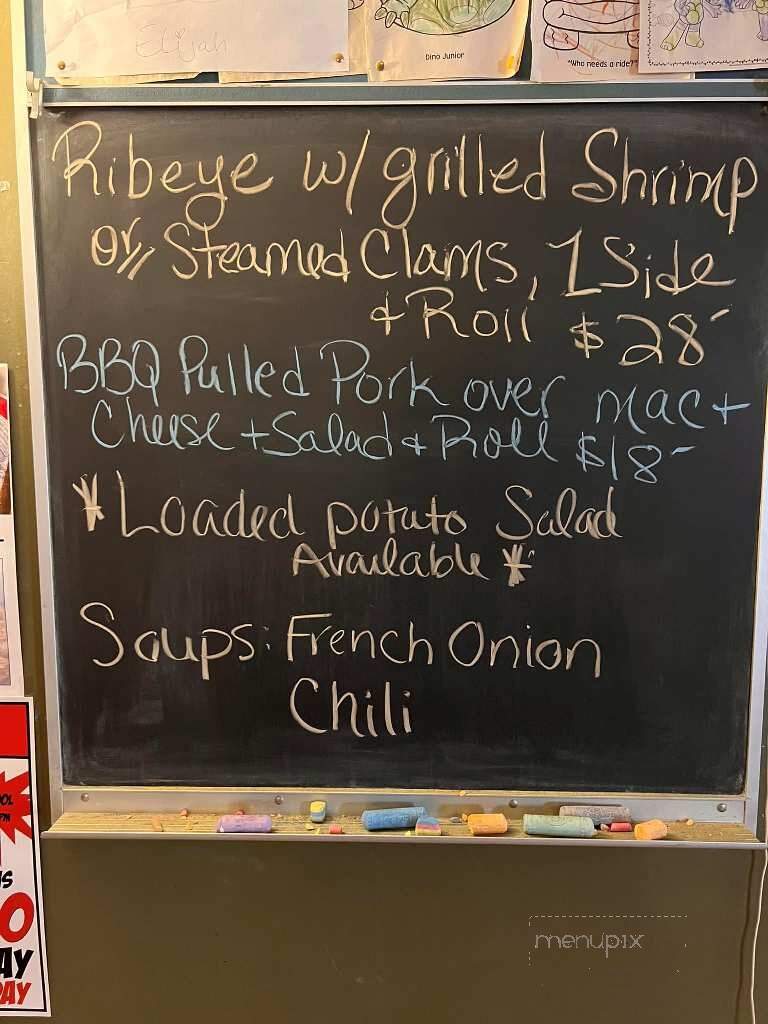 Elijah
Dino Junior
"Who needs a ride?"
Ribeye w/ grilled Shrimp
or, Steamed Clams, 1 Side
+ Roll $28-
BBQ Pulled Pork over mac +
Cheese + Salad + Roll $18-
* Loaded potato Salad
Available *
Soups: French Onion
Chili
menupix